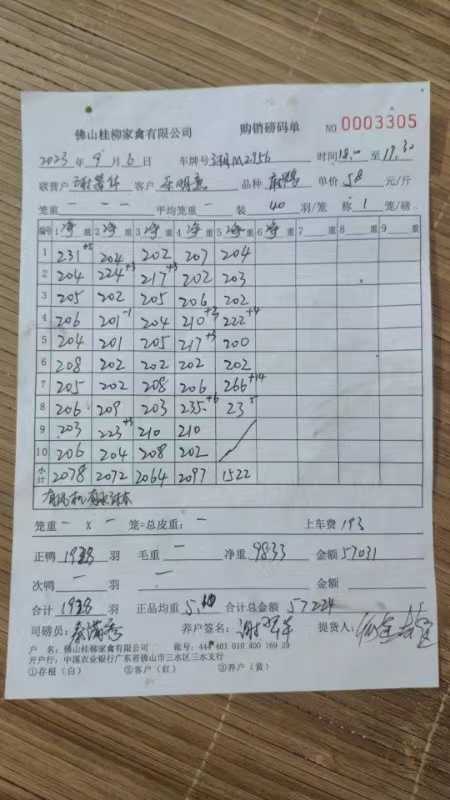 佛山桂柳家禽有限公司 购销磅码单 NO 0003305
2023年9月6日 车牌号 M2956 时间18.00至19.30
收营户 客户 品种 单价5.8元/斤
笼重 — — — 平均笼重 — 装 40 羽/笼 称 1 笼/磅
编号 1净重 2净重 3净重 4净重 5净重 6净重 7 重 8 重 9 重
1 231+5 204 202 207 204
2 204 224+3 217+3 202 203
3 205 202 205 206 202
4 206 201-1 204 210+2 222+4
5 204 201 205 217+3 200
6 208 202 202 202 202
7 205 202 208 206 266+14
8 206 209 203 235+6 23
9 203 223+3 210 210
10 206 204 208 202
小计 2078 2072 2064 2097 1522
笼重 — X — 笼=总皮重: — 上车费 193
正鸭 羽 毛重 — 净重 9833 金额 57031
次鸭 — 羽 — 金额
合计 羽 正品均重 合计总金额 57224
司磅员: 养户签名: 提货人:
户 名:佛山桂柳家禽有限公司 账号:
开户行:中国农业银行广东省佛山市三水区三水支行
①存根(白) ②客户(红) ③养户(黄)